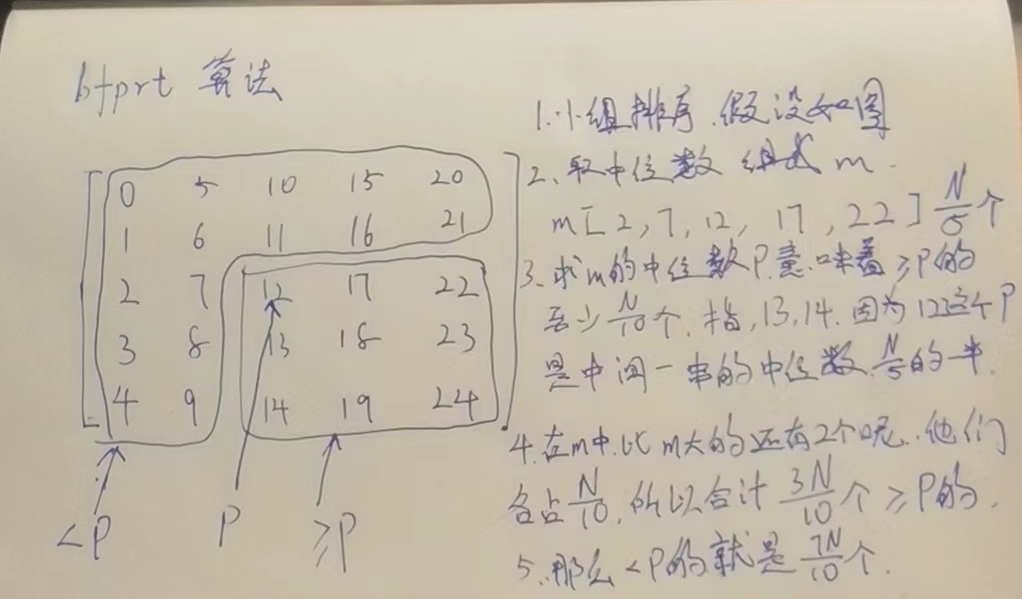 bfprt 算法
0 5 10 15 20
1 6 11 16 21
2 7 12 17 22
3 8 13 18 23
4 9 14 19 24
<P P ≥P
1.小组排序.假设如图
2、取中位数 组成 m.
m[2,7,12, 17,22] N/5个
3、求m的中位数P.意味着≥P的
至少N/10个.指,13,14.因为12这个P
是中间一串的中位数.N/5的一半.
4.在m中.比m大的还有2个呢..他们
各占N/10.所以合计 3N/10个≥P的.
5.那么<P的就是7N/10个.